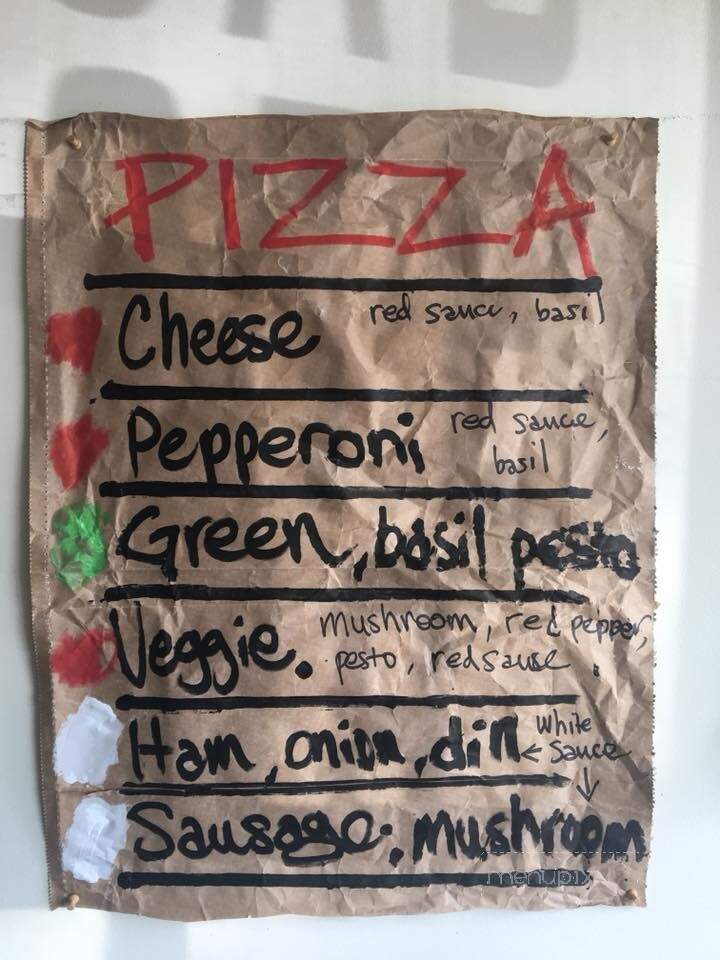 PIZZA
Cheese red sauce, basil
Pepperoni red sauce,
basil
Green, basil pesto
Veggie. mushroom, red pepper,
pesto, red sause
Ham, onion, dill ← White
Sauce
↓
Sausage, mushroom
menupix